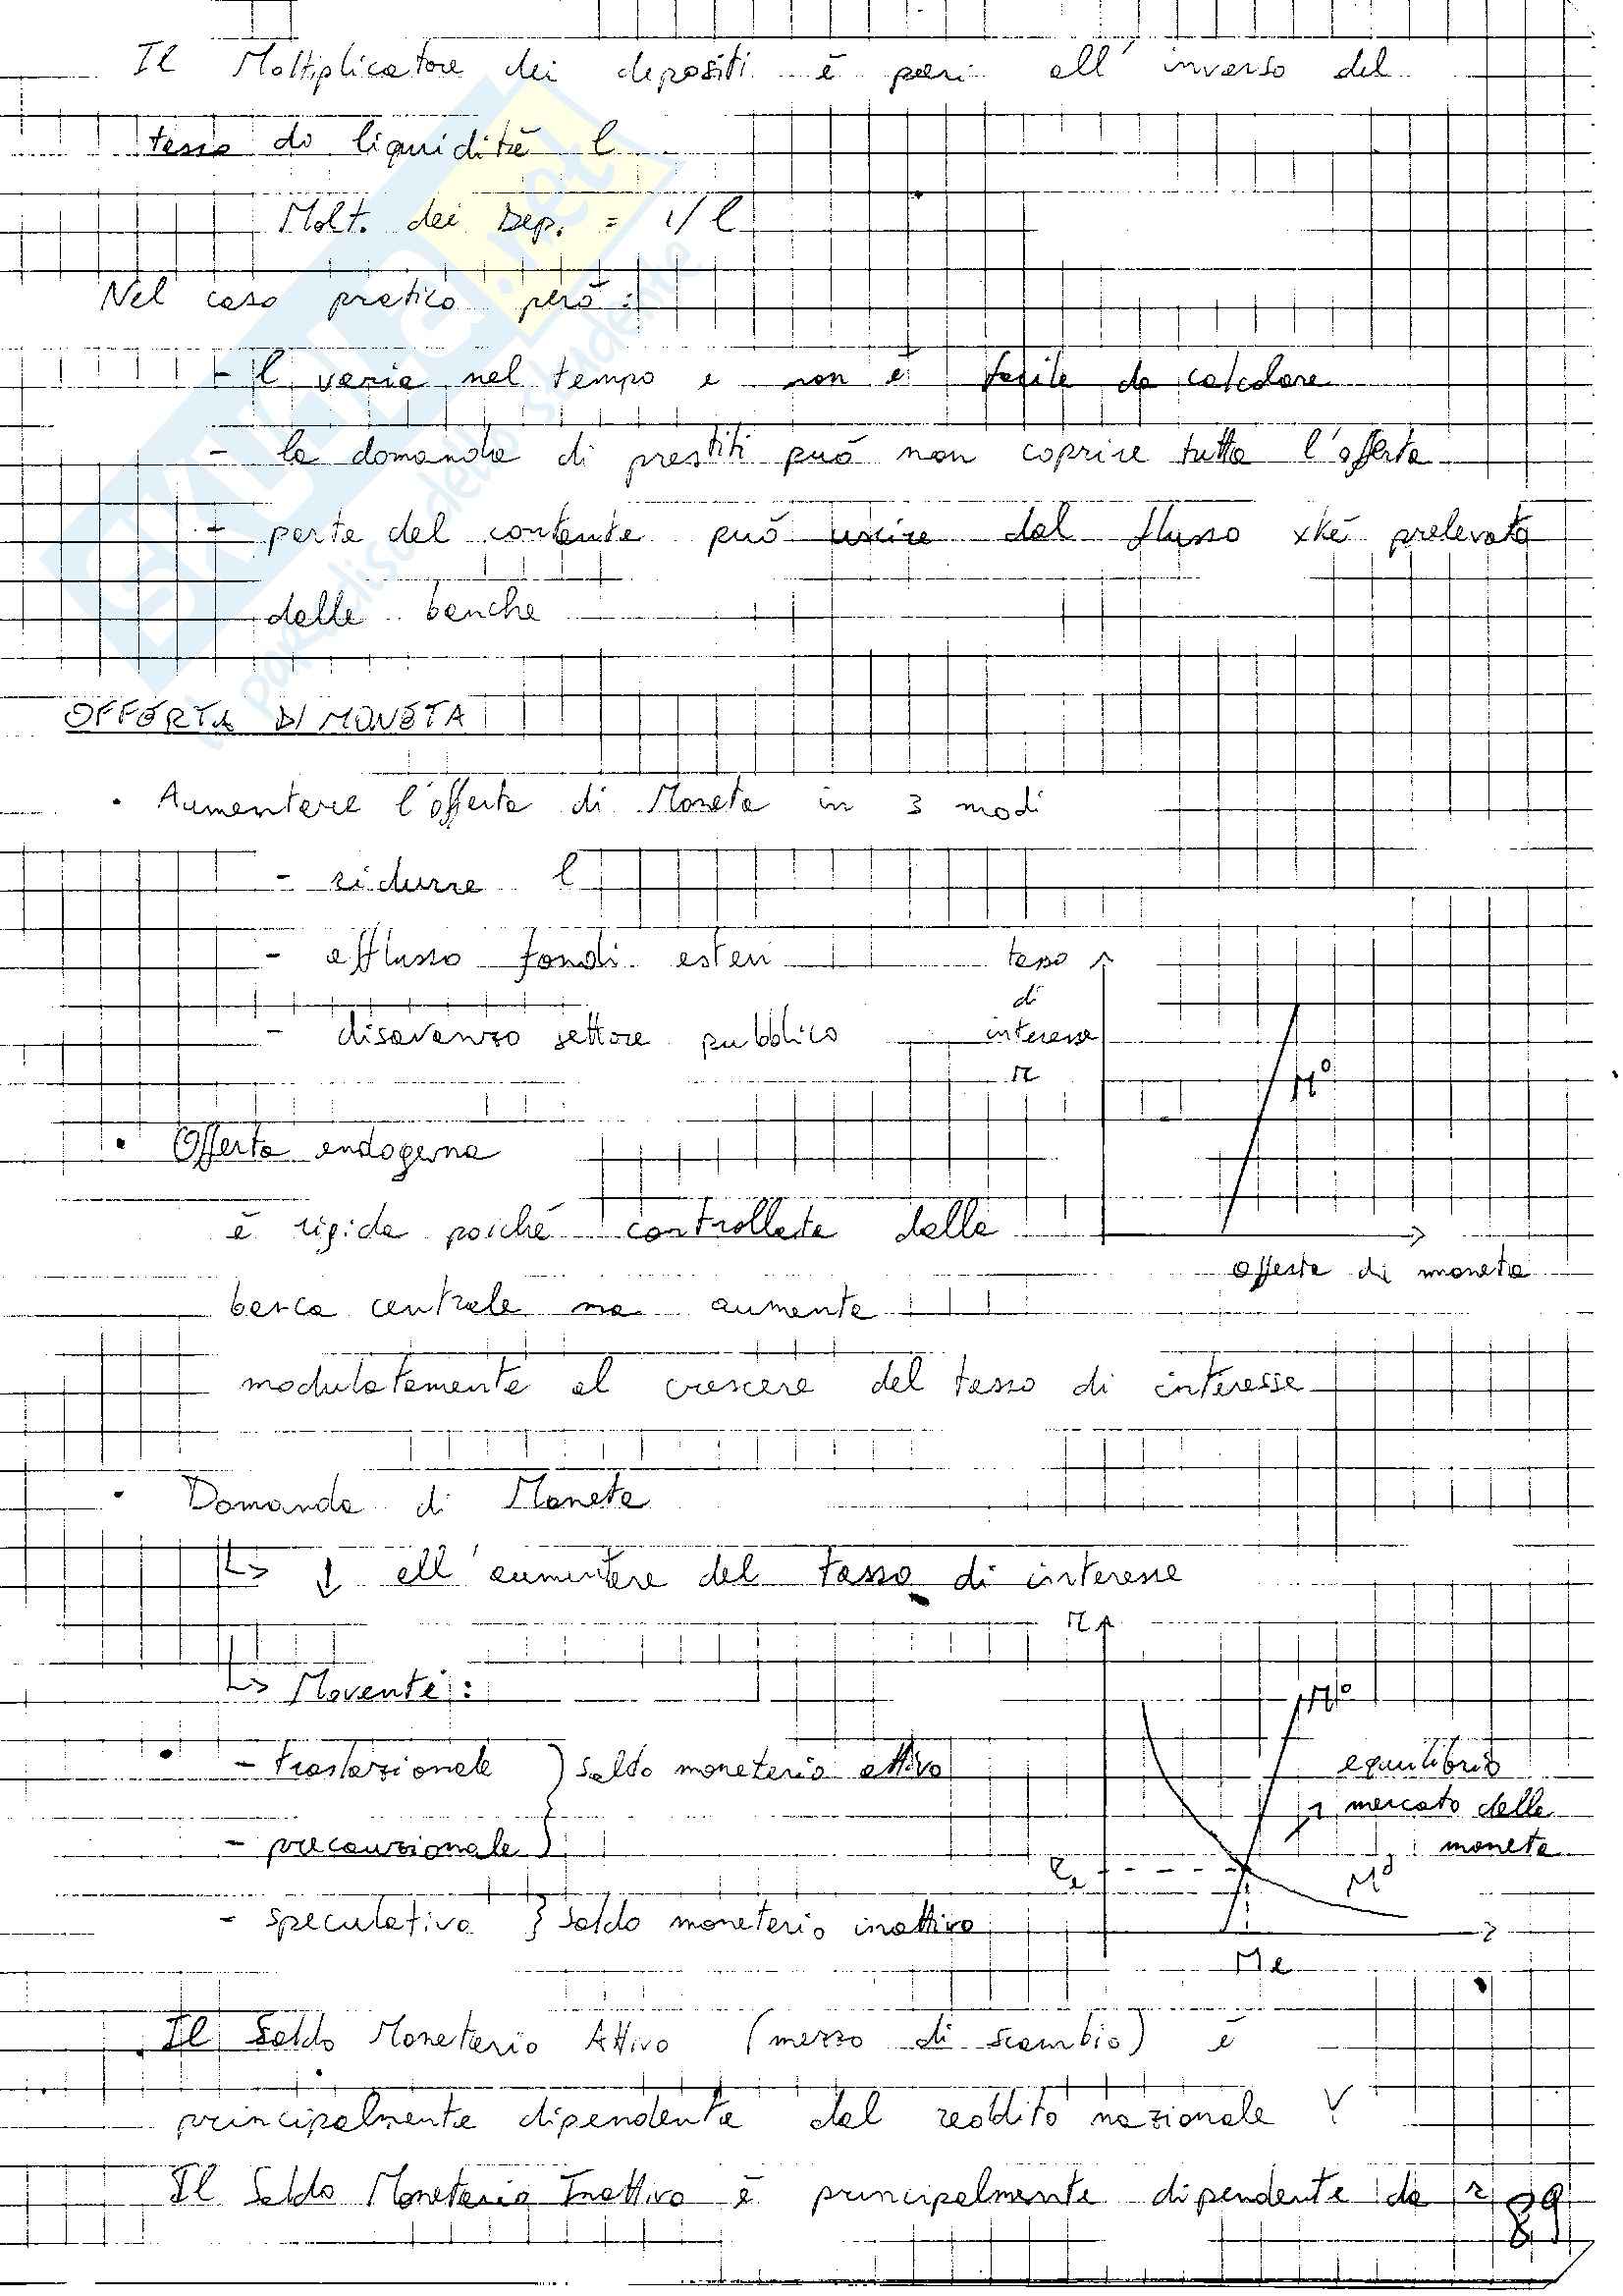 Il Moltiplicatore dei depositi è pari all'inverso del
tasso di liquidità l
Molt. dei Dep. = 1/l
Nel caso pratico però:
- l varia nel tempo e non è facile da calcolare
- la domanda di prestiti può non coprire tutta l'offerta
- parte del contante può uscire dal flusso xké prelevata
dalle banche
OFFERTA DI MONETA
• Aumentare l'offerta di Moneta in 3 modi
- ridurre l
- afflusso fondi esteri
- disavanzo settore pubblico
tasso
di
interesse
r
M°
offerta di moneta
• Offerta endogena
è rigida poiché controllata dalla
banca centrale ma aumenta
modulatamente al crescere del tasso di interesse
• Domanda di Moneta
↳ ↓ all'aumentare del tasso di interesse
↳ Moventi:
- trastazionale } saldo monetario attivo
- precauzionale
- speculativa } saldo monetario inattivo
r
M°
equilibrio
mercato della
moneta
re
Md
Me
Il Saldo Monetario Attivo (mezzo di scambio) è
principalmente dipendente dal reddito nazionale Y
Il Saldo Monetario Inattivo è principalmente dipendente da r
89
SKUOLA.net
il paradiso dello studente